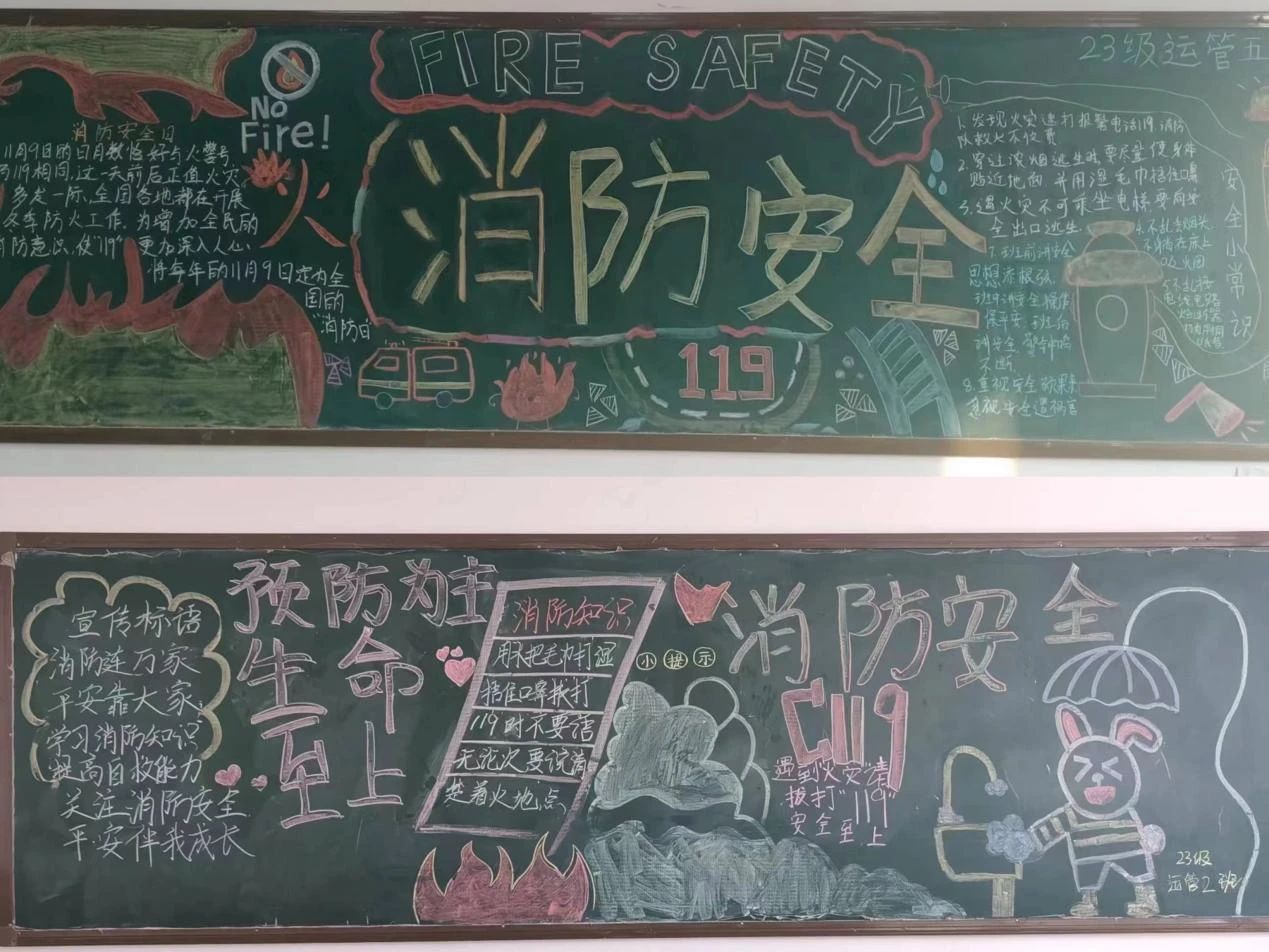 No
Fire!
消防安全日
11月9日的日月数恰好与火警号
119相同,这一天前后正值火灾
多发一际、全国各地都在开展
冬季防火工作.为增加全民的
防意识,使"119"更加深入人心,
将每年的11月9日定为全
国的
"消防日
火
FIRE SAFETY
消防安全
119
23级运管五
1.发现火灾速打报警电话119.消防
队救火不收费
2.穿过浓烟逃生时要尽量使身体
贴近地面,并用湿毛巾捂住口鼻
3.遇火灾不可乘坐电梯要向安
全出口逃生
4.不乱丢烟头.
不躺在床上
吸烟
5.不乱接
电线电路
7.班前讲安全
思想添根弦.
班中讲安全.
保平安.班后
讲安全.警钟鸣
不断.
8.重视安全硕果来
忽视安全遭祸害
安全小常识
宣传标语
消防连万家
平安靠大家
学习消防知识
提高自救能力
关注消防安全
平安伴我成长
预防为主
生命
至上
消防知识
用水把毛巾打湿
捂住口鼻拨打
119时不要语
无沦次要说清
楚着火地点
小提示
消防安全
119
遇到"火灾"请
拨打"119"
安全至上
23级
运管2班